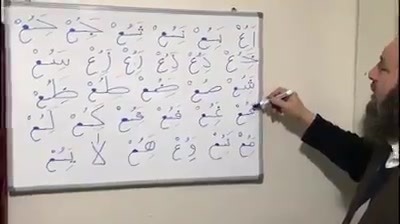 اُعْ بُعْ تُعْ ثُعْ جُعْ حُعْ
خُعْ دُعْ ذُعْ رُعْ زُعْ سُعْ
شُعْ صُعْ ضُعْ طُعْ ظُعْ
عُعْ غُعْ فُعْ قُعْ كُعْ لُعْ
مُعْ نُعْ وُعْ هُعْ لا يُعْ